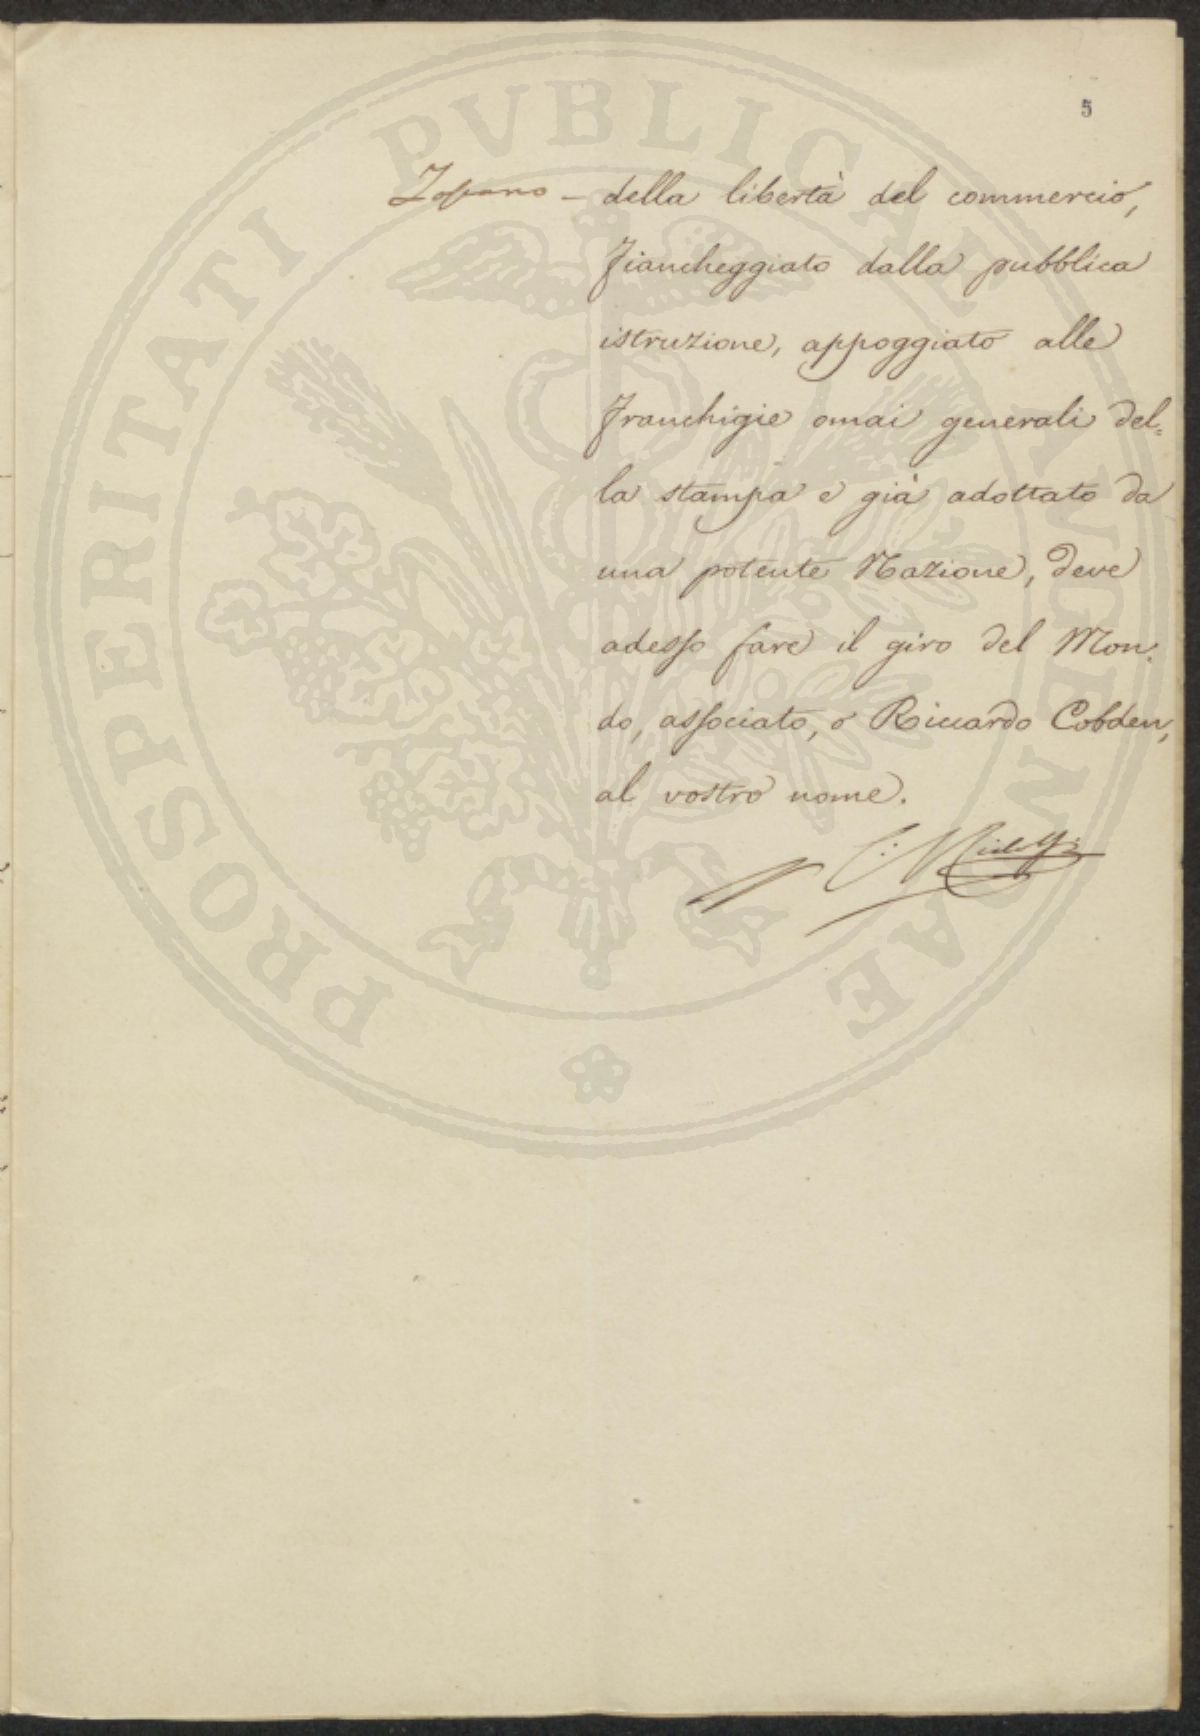 5
della libertà del commercio,
fiancheggiato dalla pubblica
istruzione, appoggiato alle
franchigie omai generali del=
la stampa e già adottato da
una potente Nazione, deve
adesso fare il giro del Mon=
do, associato, o Riccardo Cobden,
al vostro nome.
PROSPERITATI PVBLICAE AVGENDAE